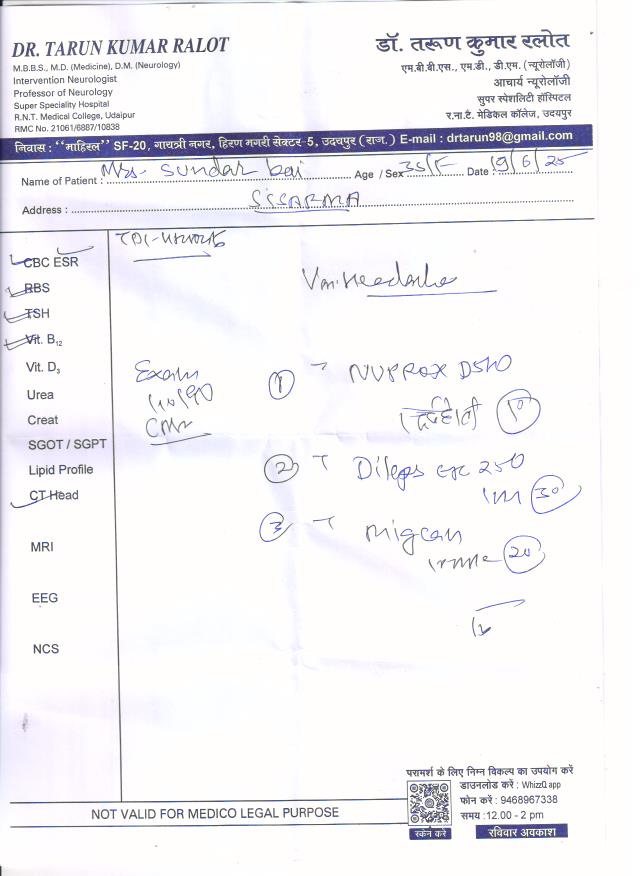 DR. TARUN KUMAR RALOT
M.B.B.S., M.D. (Medicine), D.M. (Neurology)
Intervention Neurologist
Professor of Neurology
Super Speciality Hospital
R.N.T. Medical College, Udaipur
RMC No. 21061/6887/10838
डॉ. तरूण कुमार रलोत
एम.बी.बी.एस., एम.डी., डी.एम. (न्यूरोलॉजी)
आचार्य न्यूरोलॉजी
सुपर स्पेशलिटी हॉस्पिटल
र.ना.टै. मेडिकल कॉलेज, उदयपुर
निवास : "माहिरल" SF-20, गायत्री नगर, हिरण मगरी सेक्टर-5, उदयपुर (राज.) E-mail : drtarun98@gmail.com
Name of Patient : Mrs. Sundar bai Age / Sex 35/F Date : 19/6/25
Address : SISARMA
CBC ESR
RBS
TSH
Vit. B12
Vit. D3
Urea
Creat
SGOT / SGPT
Lipid Profile
CT Head
MRI
EEG
NCS
Headache
Exam
110/90
① T NUPROX D500
10
② T Dileps erc 250
30
③ T migcan
20
NOT VALID FOR MEDICO LEGAL PURPOSE
परामर्श के लिए निम्न विकल्प का उपयोग करें
डाउनलोड करें : WhizzQ app
फोन करें : 9468967338
समय :12.00 - 2 pm
स्केन करे
रविवार अवकाश